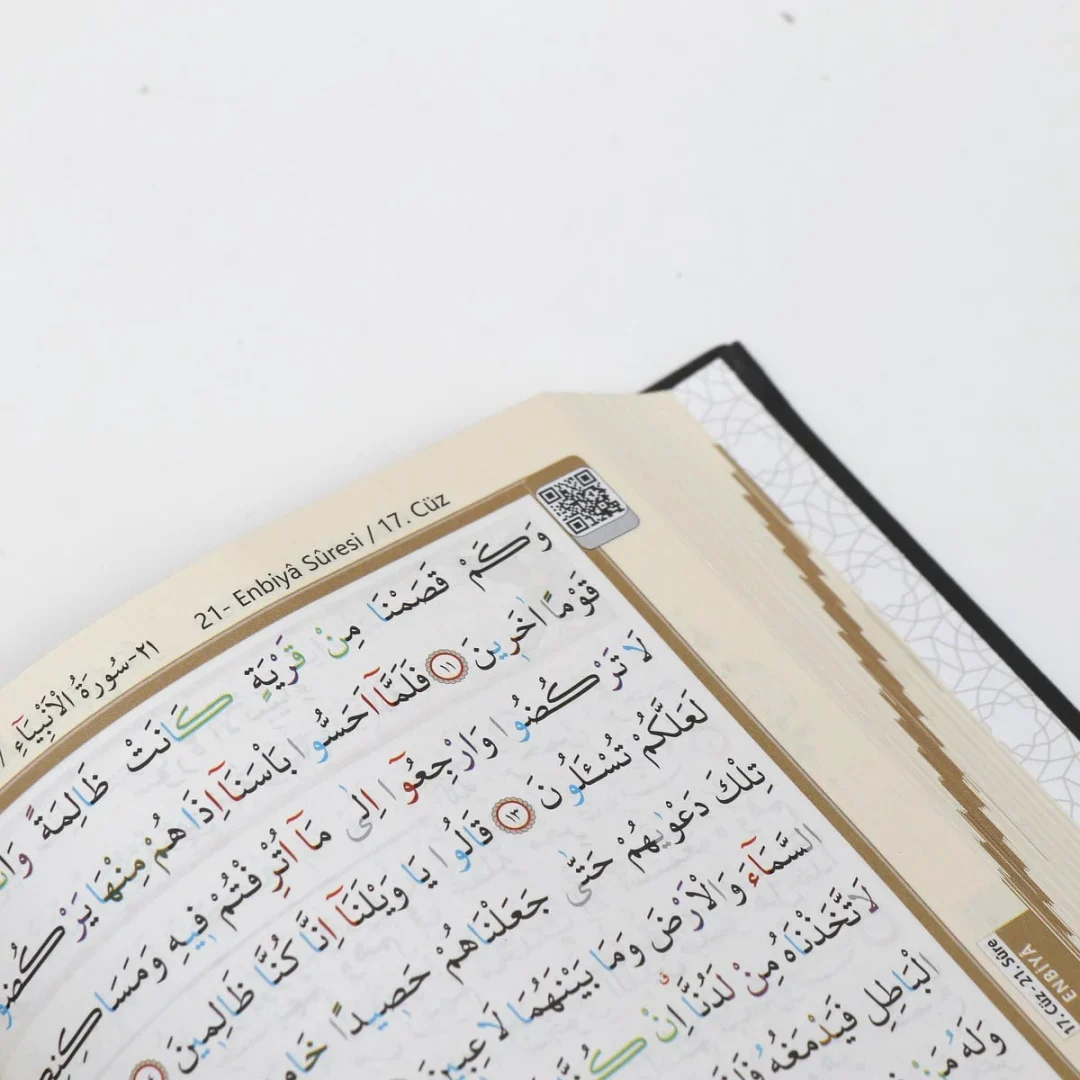 ٢١-سُورَةُ الْاَنْبِيَٓاءِ / 21- Enbiyâ Sûresi / 17. Cüz
وَكَمْ قَصَمْنَا مِنْ قَرْيَةٍ كَانَتْ ظَالِمَةً
قَوْمًا اٰخَرٖينَ ﴿١١﴾ فَلَمَّٓا اَحَسُّوا بَاْسَنَٓا اِذَا هُمْ مِنْهَا يَرْكُضُو
لَا تَرْكُضُوا وَارْجِعُٓوا اِلٰى مَٓا اُتْرِفْتُمْ فٖيهِ وَمَسَاكِنِ
لَعَلَّكُمْ تُسْـَٔلُونَ ﴿١٣﴾ قَالُوا يَا وَيْلَنَٓا اِنَّا كُنَّا ظَالِمٖينَ
تِلْكَ دَعْوٰيهُمْ حَتّٰى جَعَلْنَاهُمْ حَصٖيدًا
السَّمَٓاءَ وَالْاَرْضَ وَمَا بَيْنَهُمَا لَاعِبٖينَ
لَاتَّخَذْنَاهُ مِنْ لَدُنَّٓا اِنْ
الْبَاطِلِ فَيَدْمَغُهُ
وَلَهُ مَنْ
17.Cüz - 21. Sûre
ENBİYÂ